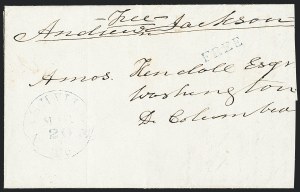 Free
Andrew Jackson
FREE
Amos Kendall Esqr
Washington
D Columbia